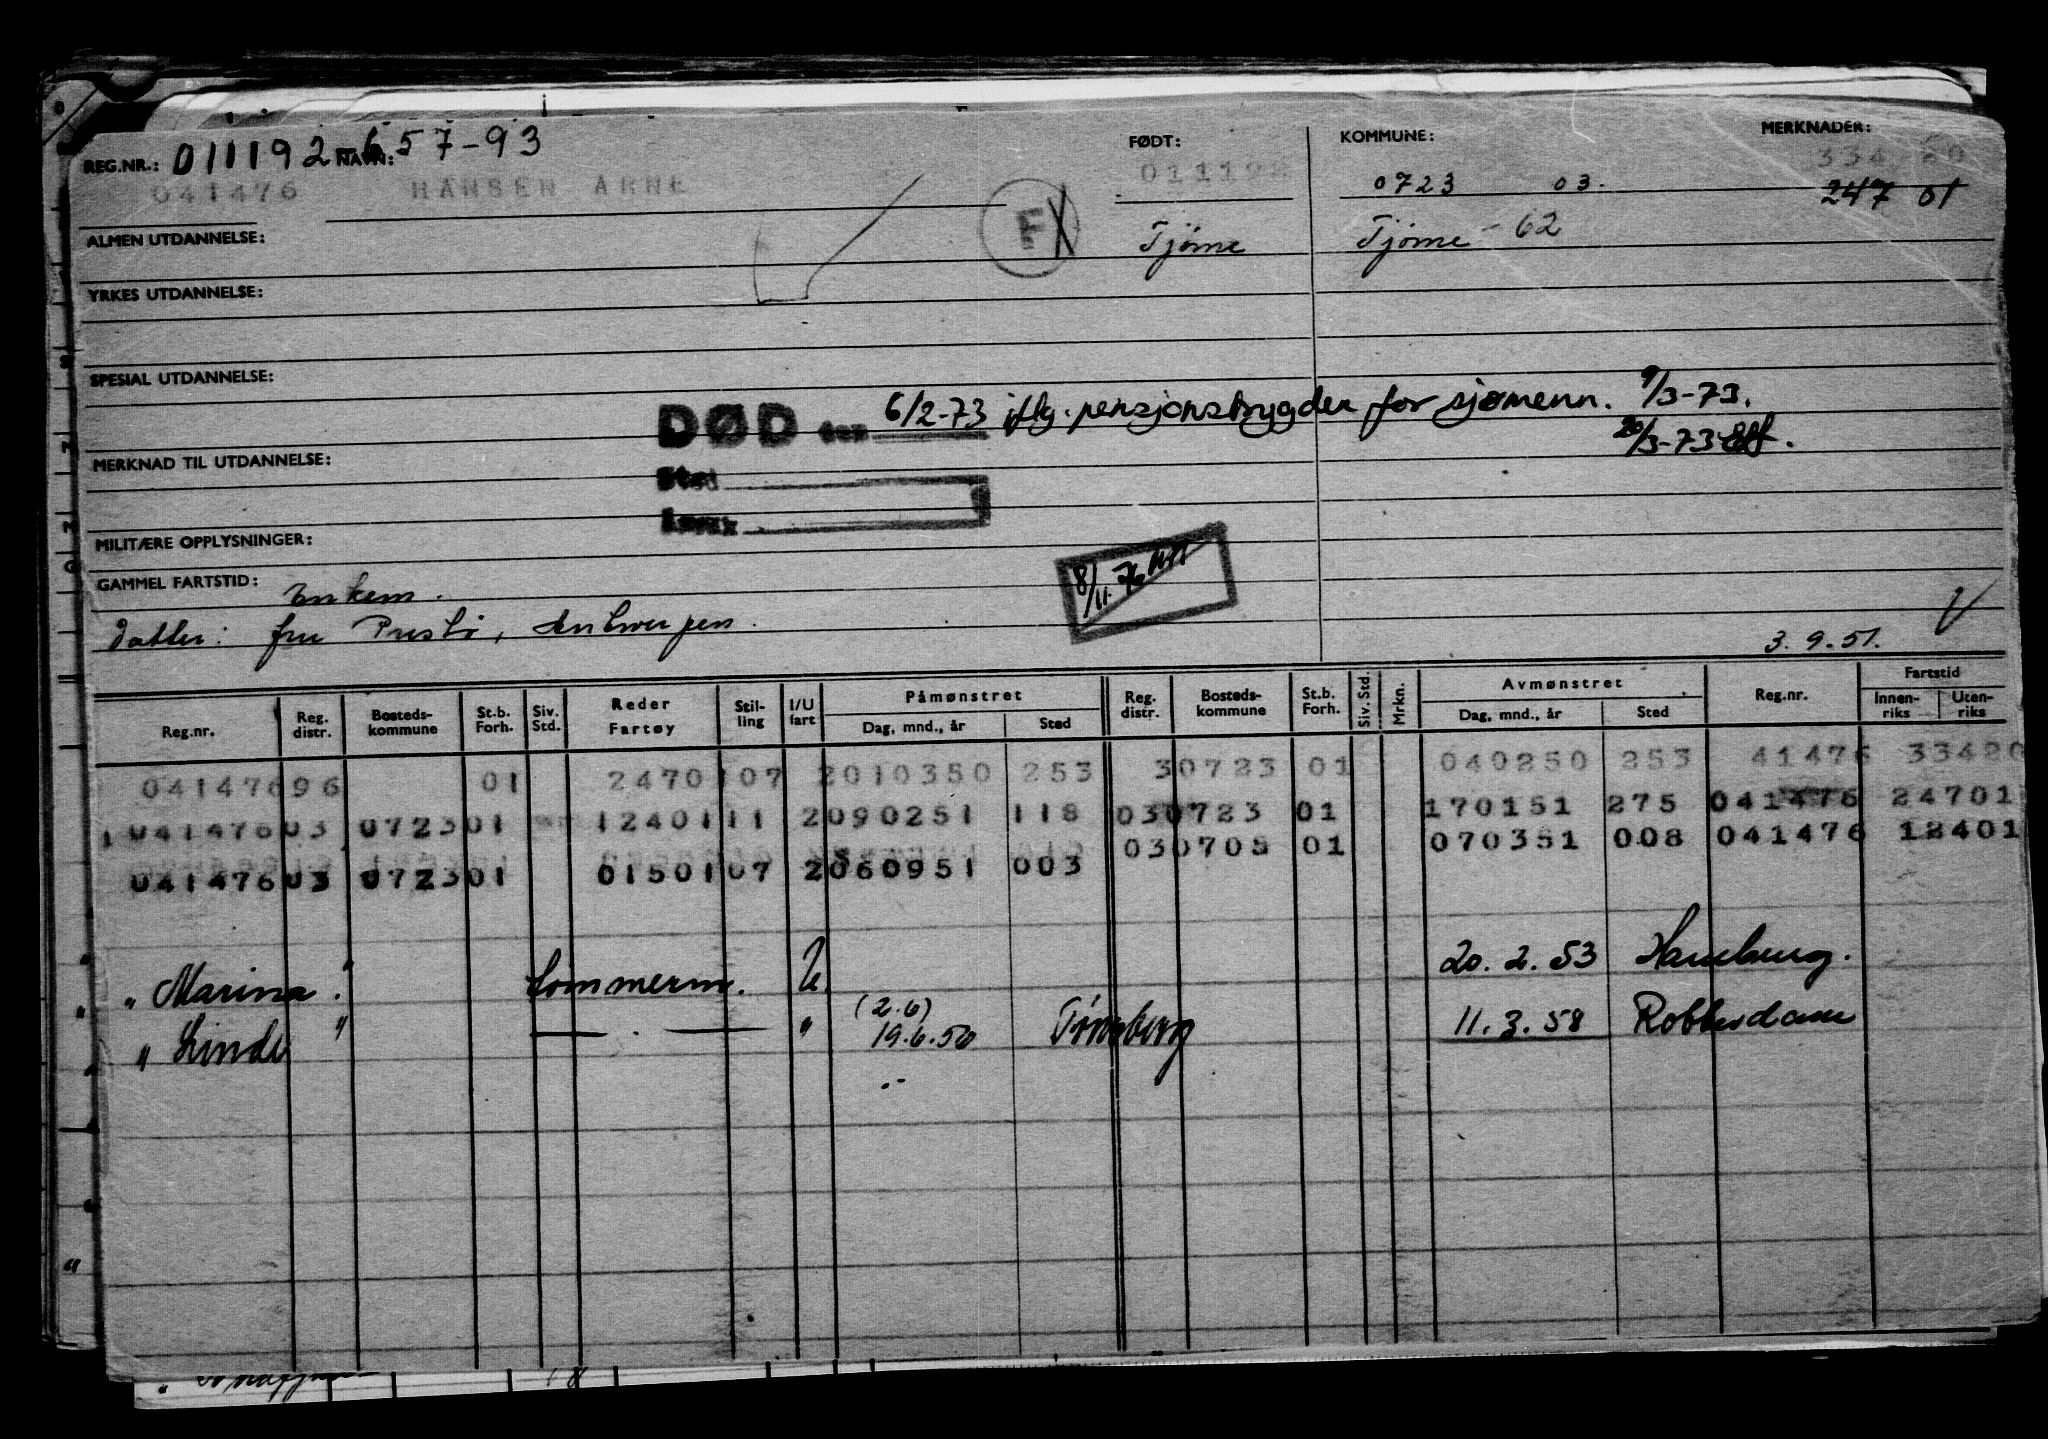 REG.NR.: 011192-657-93 NAVN: FØDT: KOMMUNE: MERKNADER:
041476 HANSEN ARNE 011192 0723 03. 334 20
247 01
ALMEN UTDANNELSE: F Tjøme Tjøme - 62
YRKES UTDANNELSE:
SPESIAL UTDANNELSE:
DØD den 6/2-73 iflg. pensjonstrygden for sjømenn. 9/3-73.
20/3-73
MERKNAD TIL UTDANNELSE:
Sted
MILITÆRE OPPLYSNINGER:
GAMMEL FARTSTID: Enkem. 8/11-76
Datter: fru Antwerpen.
3.9.51.
Reg.nr. Reg. distr. Bosteds-kommune St.b. Forh. Siv. Std. Reder Fartøy Stil-ling I/U fart Påmønstret Dag, mnd., år Sted Reg. distr. Bosteds-kommune St.b. Forh. Siv. Std. Mrkn. Avmønstret Dag, mnd., år Sted Reg.nr. Fartstid Innen-riks Uten-riks
041476 96 01 24701 07 2 010350 253 30723 01 040250 253 41476 33420
041476 03 0723 01 12401 11 2 090251 118 030723 01 170151 275 041476 24701
030705 01 070351 008 041476 12401
041476 03 0723 01 01501 07 2 060951 003
"Marina" Tømmerm. U. 20.2.53 Hamburg.
(2.6)
"Linde" — . — " 19.6.56 Tønsberg 11.3.58 Rotterdam